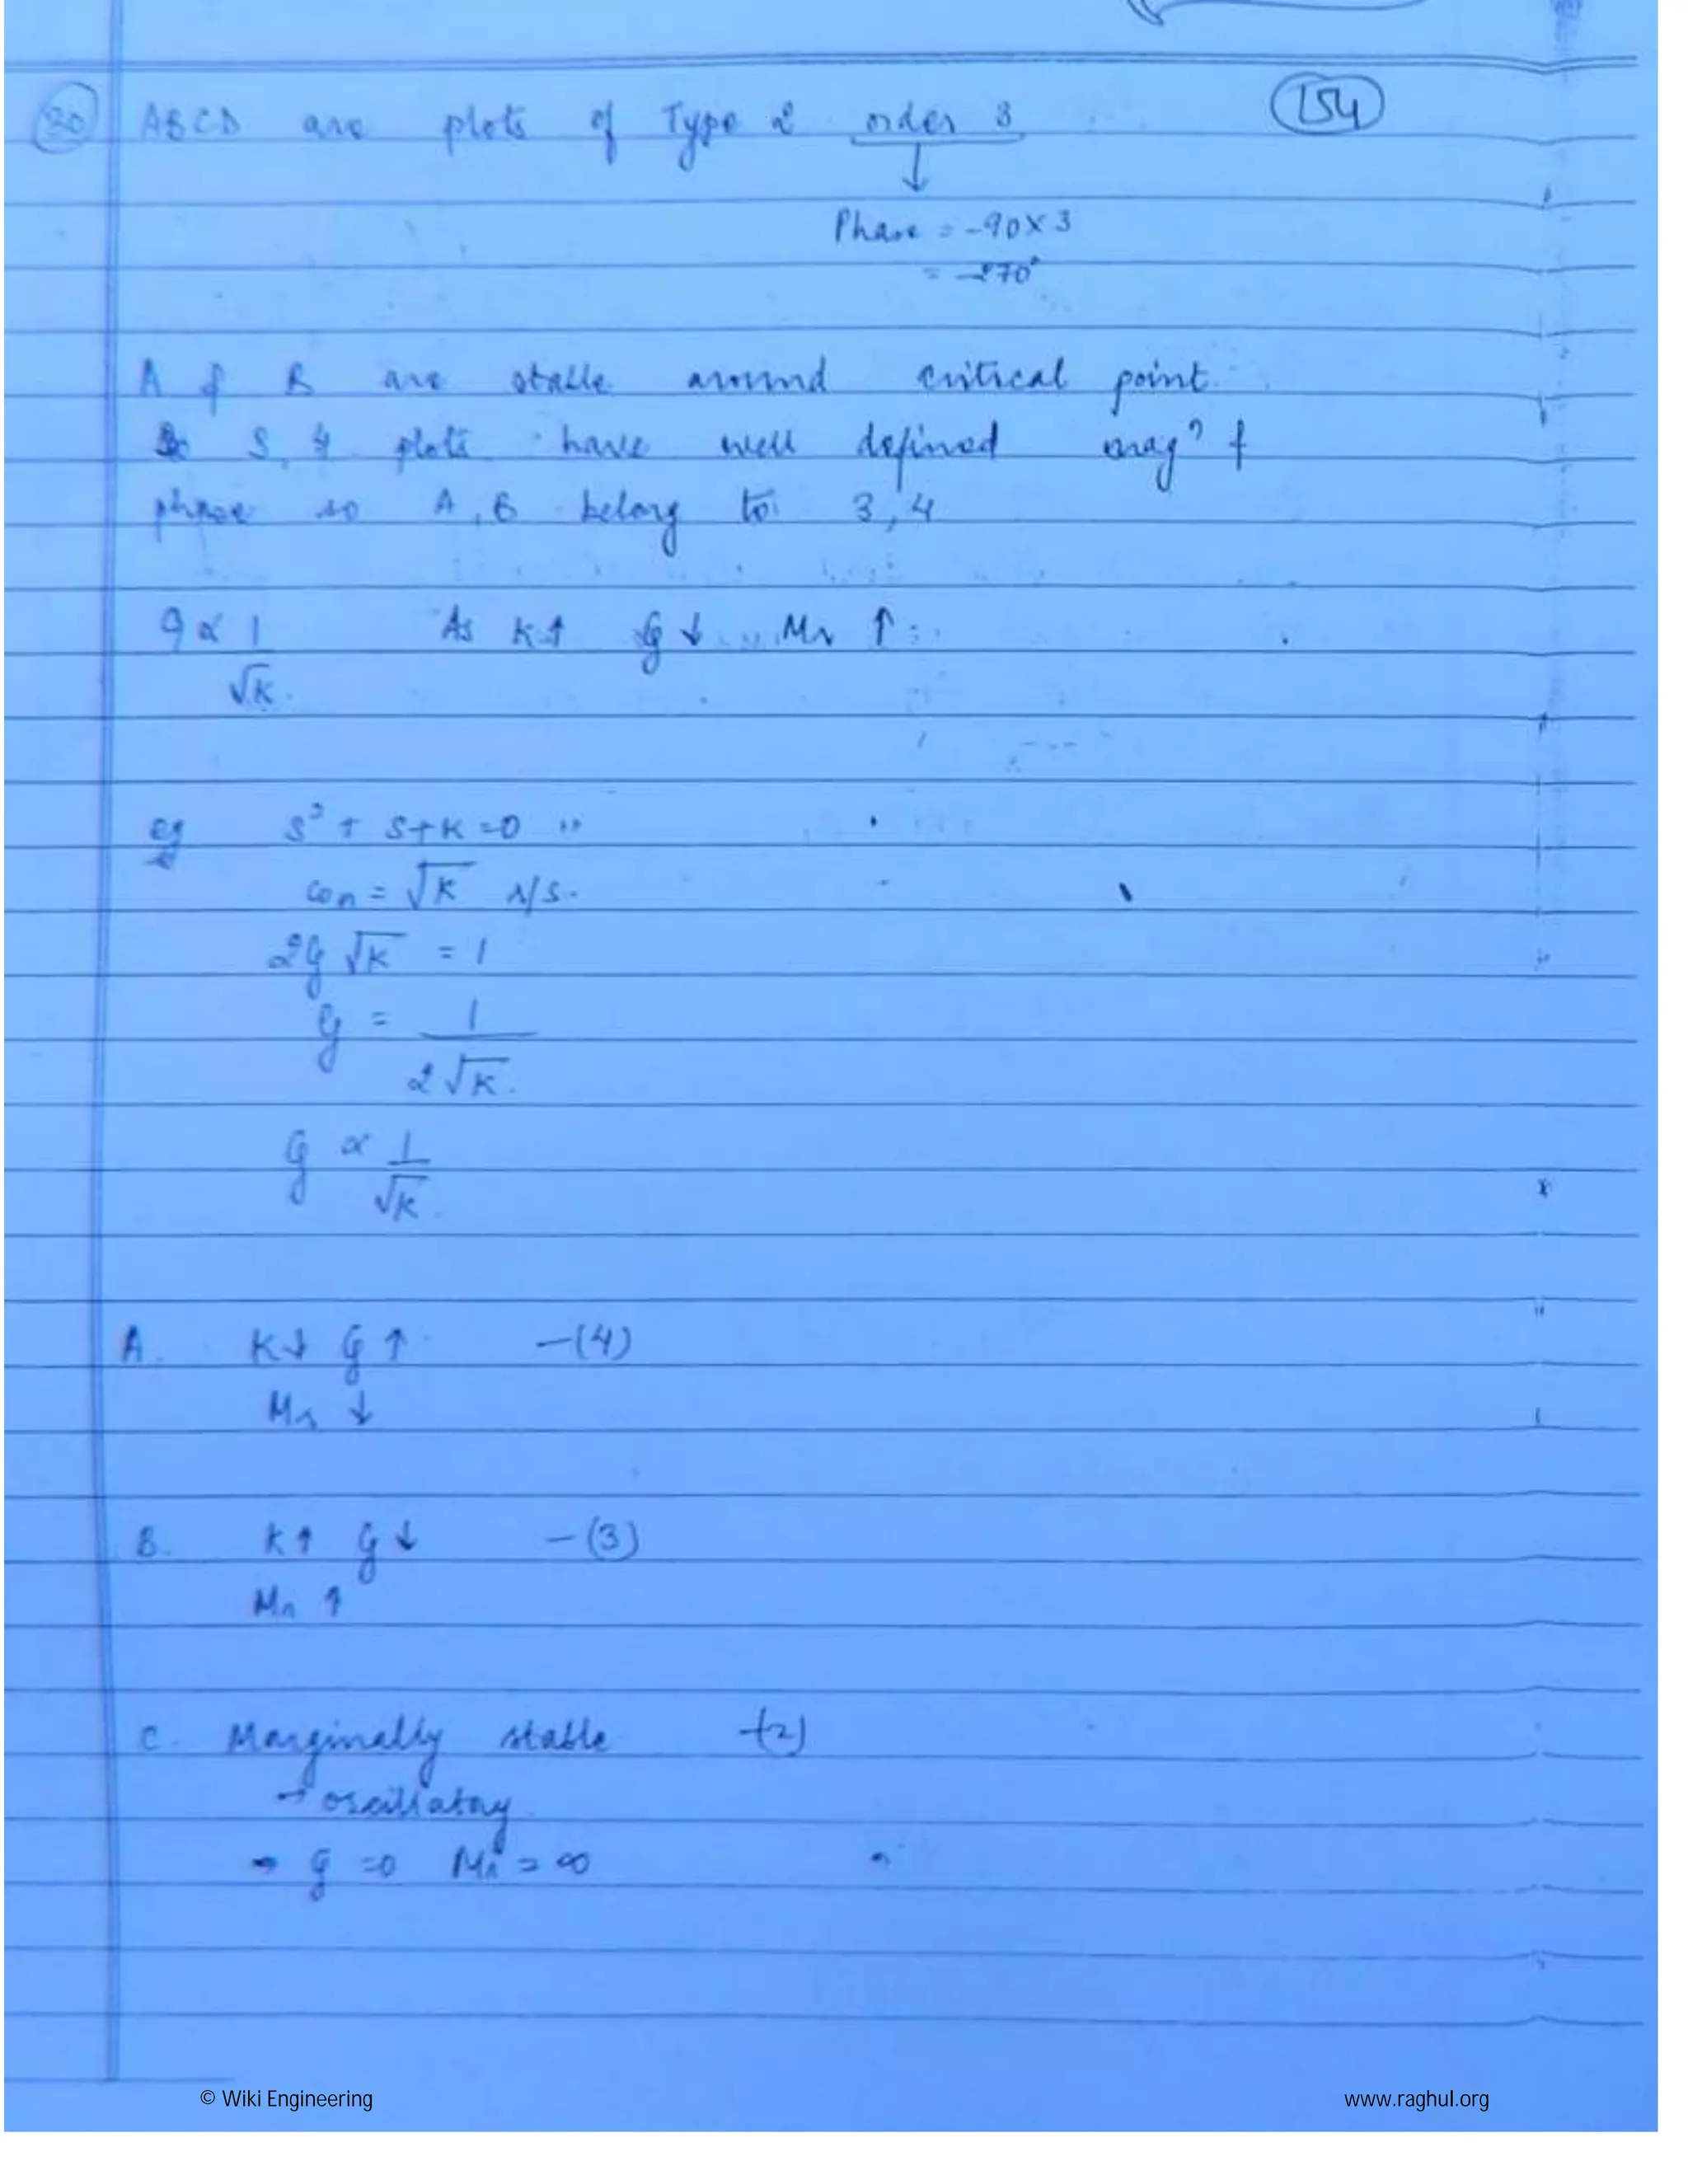 30 ABCD are plots of Type 2 order 3
154
↓
Phase = -90×3
= -270°
A & B are stable around critical point.
3, 4 plots have well defined magⁿ &
phase so A, B belong to 3, 4
ξ ∝ 1/√K As K↑ ξ↓ Mr ↑
eg s² + s+K =0
ωn = √K r/s.
2ξ √K = 1
ξ = 1/2√K.
ξ ∝ 1/√K.
A. K↓ ξ↑ —(4)
Mr ↓
B. K↑ ξ↓ —(3)
Mr ↑
C. Marginally stable —(2)
→ oscillatory
→ ξ =0 Mr = ∞
© Wiki Engineering
www.raghul.org